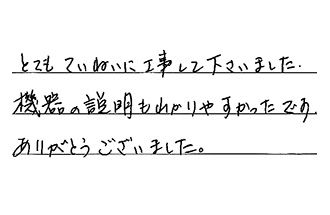 とても ていねいに工事して下さいました.
機器の説明もわかりやすかったです.
ありがとうございました。